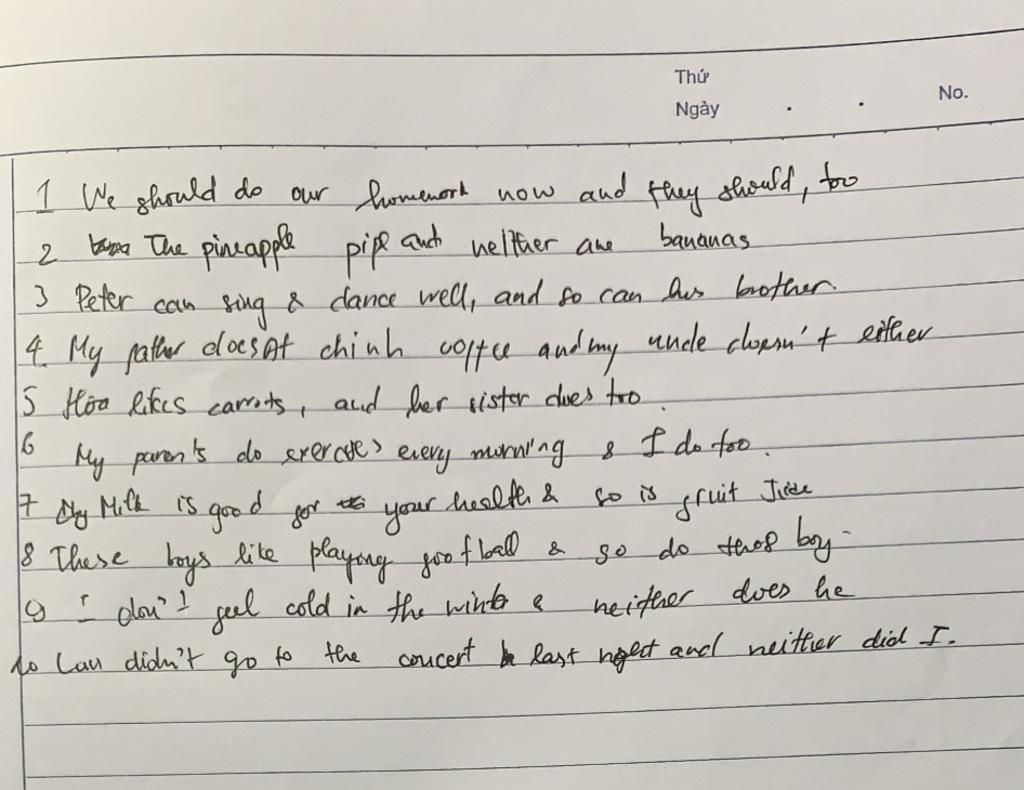 Thứ
Ngày . . No.
1 We should do our homework now and they should, too
2 The pineapple pipe and neither are bananas
3 Peter can sing & dance well, and so can his brother.
4. My father doesnt chinh coffee and my uncle doesn't either
5 Hoa likes carrots, and her sister does too.
6 My parents do exercises every morning & I do too.
7 Milk is good for your health & so is fruit Juice
8 These boys like playing football & so do those boy
9 I don't feel cold in the winter & neither does he
10 Lan didn't go to the concert last night and neither did I.